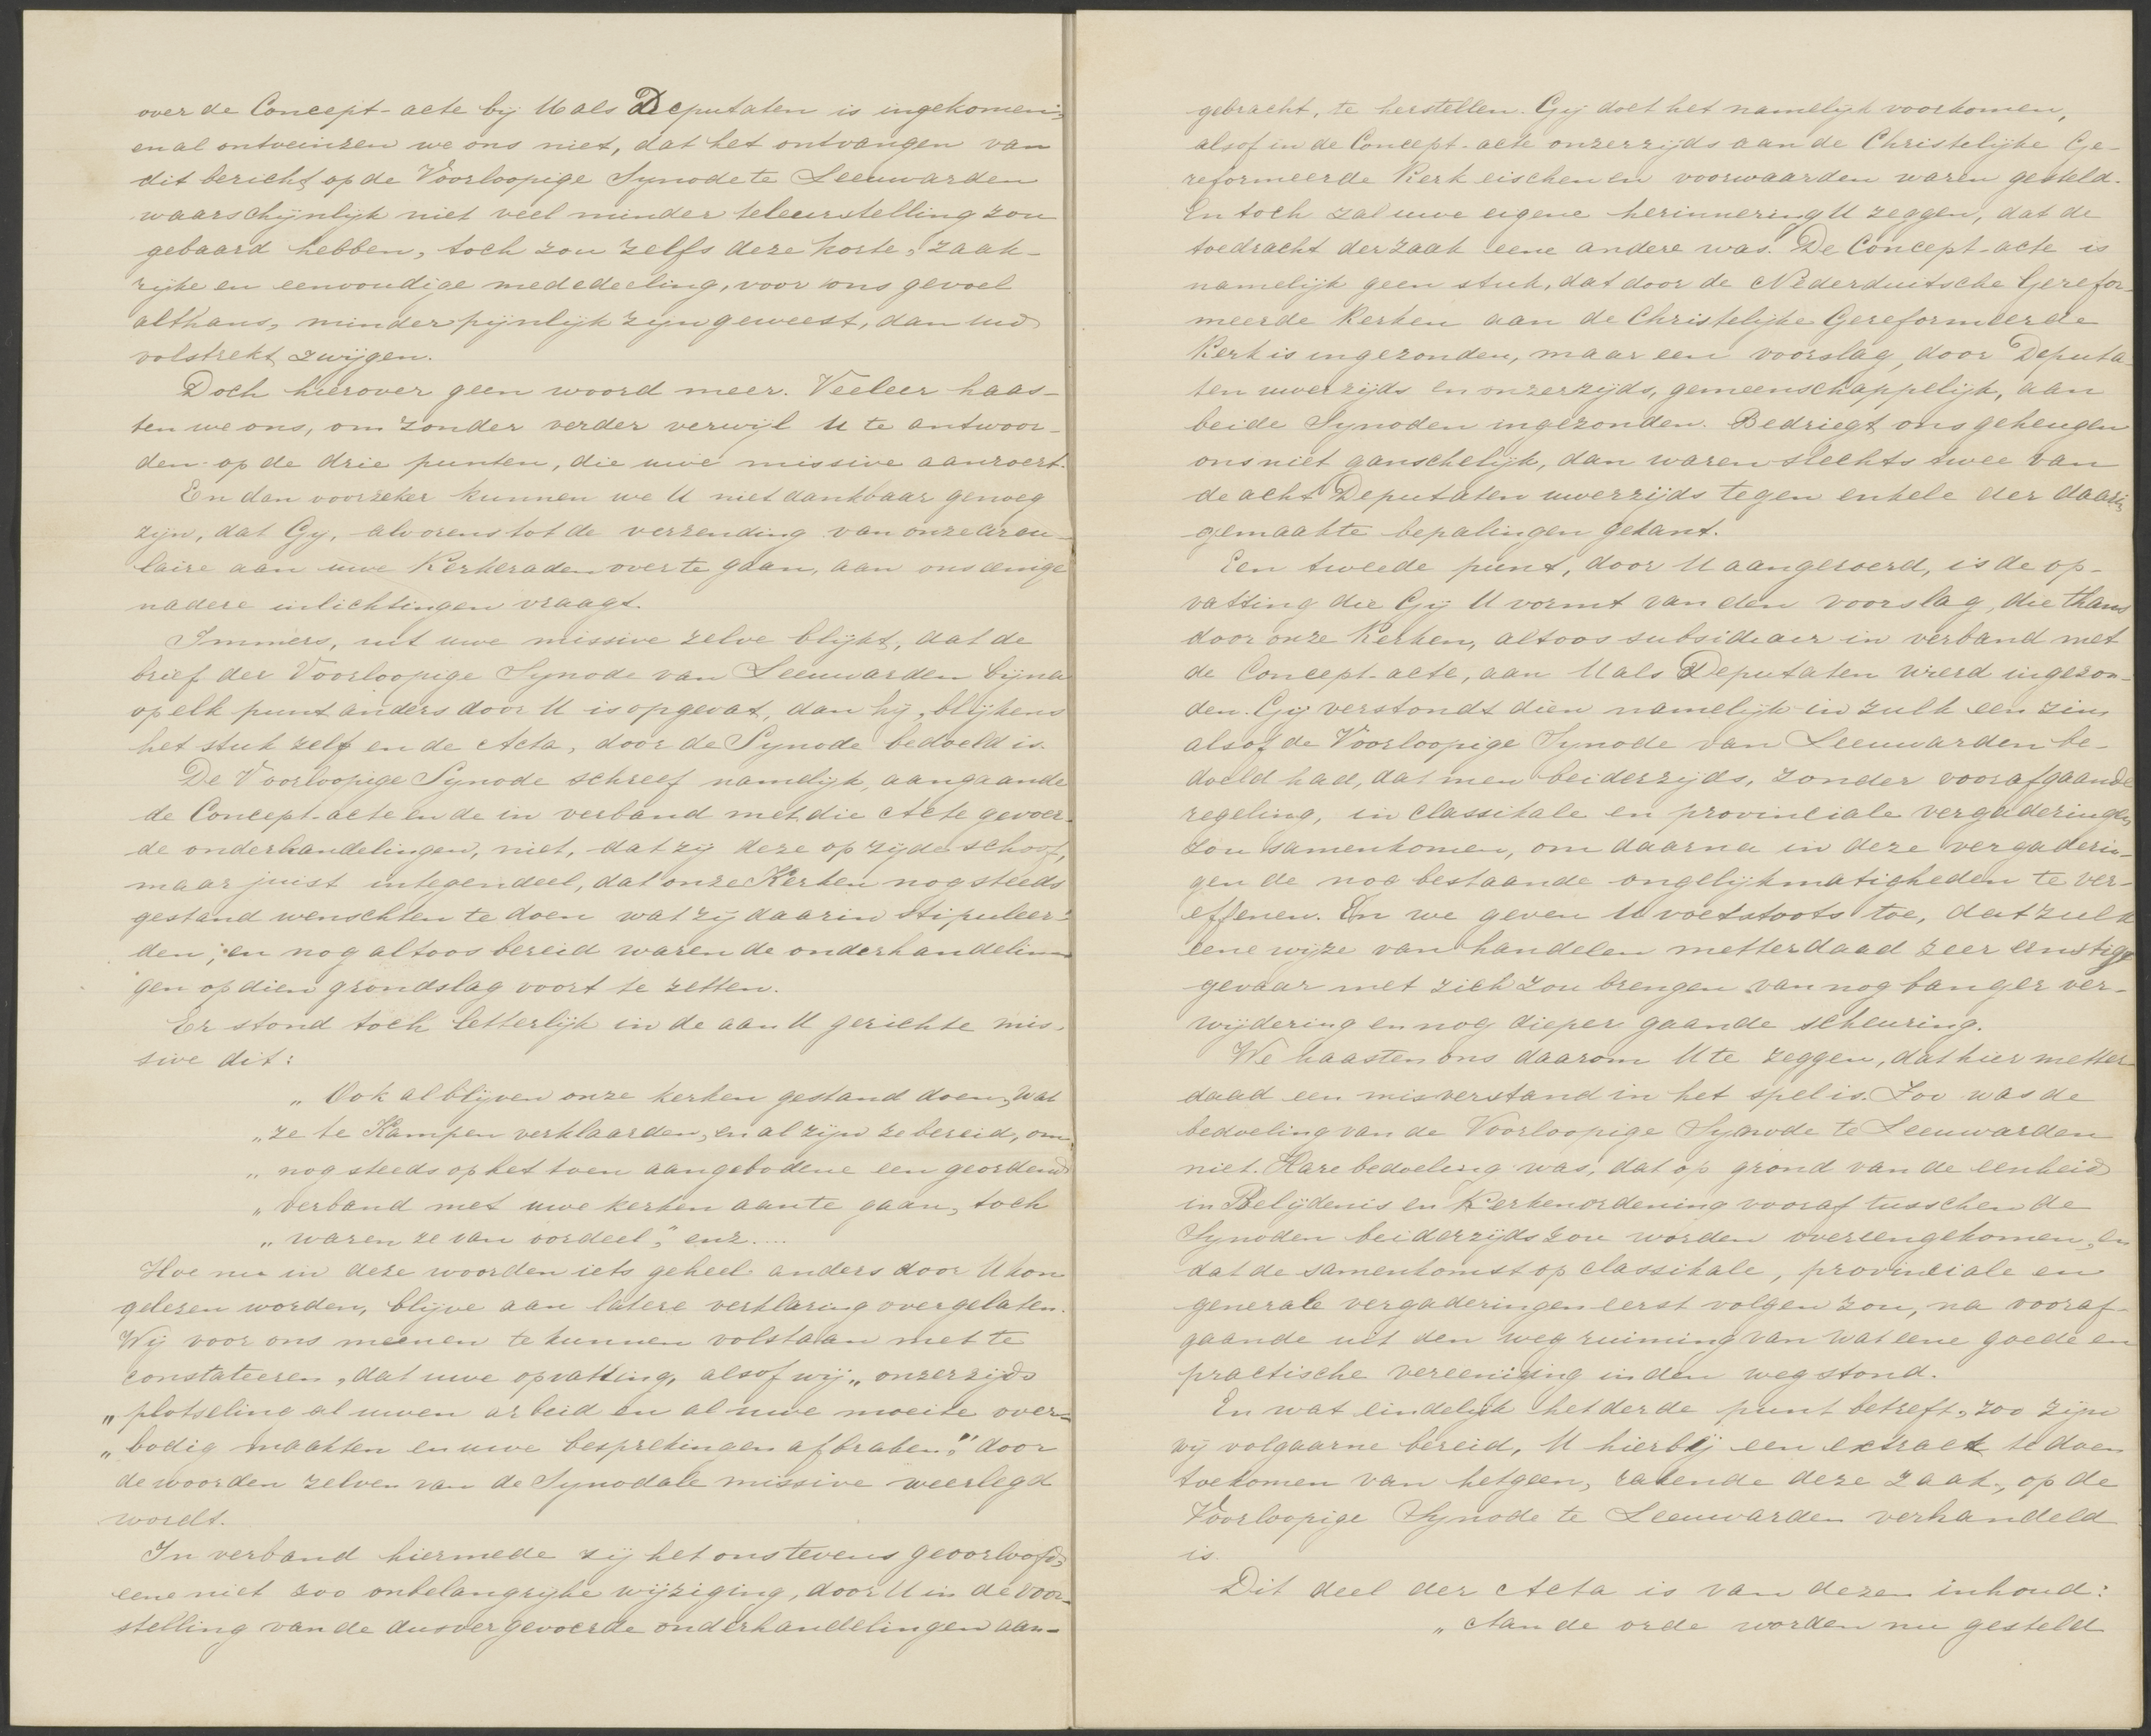 over de Concept-acte bij U als Deputaten is ingekomen;
en al ontveinzen we ons niet, dat het ontvangen van
dit bericht op de Voorloopige Synode te Leeuwarden
waarschijnlijk niet veel minder teleurstelling zou
gebaard hebben, toch zou zelfs deze korte, zaak-
rijke en eenvoudige mededeeling, voor ons gevoel
althans, minder pijnlijk zijn geweest, dan uw
volstrekt zwijgen.
Doch hierover geen woord meer. Veeleer haas-
ten we ons, om zonder verder verwijl U te antwoor-
den op de drie punten, die uwe missive aanroert.
En dan voorzeker kunnen we U niet dankbaar genoeg
zijn, dat Gij, alvorens tot de verzending van onze circu-
laire aan uwe Kerkeraden over te gaan, aan ons eenige
nadere inlichtingen vraagt.
Immers, uit uwe missive zelve blijkt, dat de
brief der Voorloopige Synode van Leeuwarden bijna
op elk punt anders door U is opgevat, dan hij, blijkens
het stuk zelf en de Acta, door de Synode bedoeld is.
De Voorloopige Synode schreef namelijk, aangaande
de Concept-acte en de in verband met die Acte gevoer-
de onderhandelingen, niet, dat zij deze op zijde schoof,
maar juist integendeel, dat onze Kerken nog steeds
gestand wenschten te doen wat zij daarin stipuleer-
den; en nog altoos bereid waren de onderhandelin-
gen op dien grondslag voort te zetten.
Er stond toch letterlijk in de aan U gerichte mis-
sive dit:
„ Ook al blijven onze kerken gestand doen, wat
„ ze te Kampen verklaarden, en al zijn ze bereid, om
„ nog steeds op het toen aangebodene een geordend
„ verband met uwe kerken aan te gaan, toch
„ waren ze van oordeel", enz....
Hoe nu in deze woorden iets geheel anders door U kon
gelezen worden, blijve aan latere verklaring overgelaten.
Wij voor ons meenen te kunnen volstaan met te
constateeren, dat uwe opvatting, alsof wij „ onzerzijds
„ plotseling al uwen arbeid en al uwe moeite over-
„ bodig maakten en uwe besprekingen afbraken", door
de woorden zelven van de Synodale missive weerlegd
wordt.
In verband hiermede zij het ons tevens geoorloofd,
eene niet zoo onbelangrijke wijziging, door U in de voor-
stelling van de dusver gevoerde onderhandelingen aan-
gebracht, te herstellen. Gij doet het namelijk voorkomen,
alsof in de Concept-acte onzerzijds aan de Christelijke Ge-
reformeerde Kerk eischen en voorwaarden waren gesteld.
En toch zal uwe eigene herinnering U zeggen, dat de
toedracht der zaak eene andere was. De Concept-acte is
namelijk geen stuk, dat door de Nederduitsche Gerefor-
meerde Kerken aan de Christelijke Gereformeerde
Kerk is ingezonden, maar een voorslag, door Deputa-
ten uwerzijds en onzerzijds, gemeenschappelijk, aan
beide Synoden ingezonden. Bedriegt ons geheugen
ons niet ganschelijk, dan waren slechts twee van
de acht Deputaten uwerzijds tegen enkele der daarin
gemaakte bepalingen gekant.
Een tweede punt, door U aangeroerd, is de op-
vatting die Gij U vormt van den voorslag, die thans
door onze Kerken, altoos subsidiair in verband met
de Concept-acte, aan U als Deputaten werd ingezon-
den. Gij verstondt dien namelijk in zulk een zin,
alsof de Voorloopige Synode van Leeuwarden be-
doeld had, dat men beiderzijds, zonder voorafgaande
regeling, in classikale en provinciale vergaderingen
zou samenkomen, om daarna in deze vergaderin-
gen de nog bestaande ongelijkmatigheden te ver-
effenen. En we geven U voetstoots toe, dat zulk
eene wijze van handelen metterdaad zeer ernstige
gevaar met zich zou brengen van nog banger ver-
wijdering en nog dieper gaande scheuring.
We haasten ons daarom U te zeggen, dat hier metter-
daad een misverstand in het spel is. Zoo was de
bedoeling van de Voorloopige Synode te Leeuwarden
niet. Hare bedoeling was, dat op grond van de eenheid
in Belijdenis en Kerkenordening vooraf tusschen de
Synoden beiderzijds zou worden overeengekomen, en
dat de samenkomst op classikale, provinciale en
generale vergaderingen eerst volgen zou, na vooraf-
gaande uit den weg ruiming van wat eene goede en
practische vereeniging in den weg stond.
En wat eindelijk het derde punt betreft, zoo zijn
wij volgaarne bereid, U hierbij een extract te doen
toekomen van hetgeen, rakende deze zaak, op de
Voorloopige Synode te Leeuwarden verhandeld
is.
Dit deel der Acta is van dezen inhoud:
„ Aan de orde worden nu gesteld